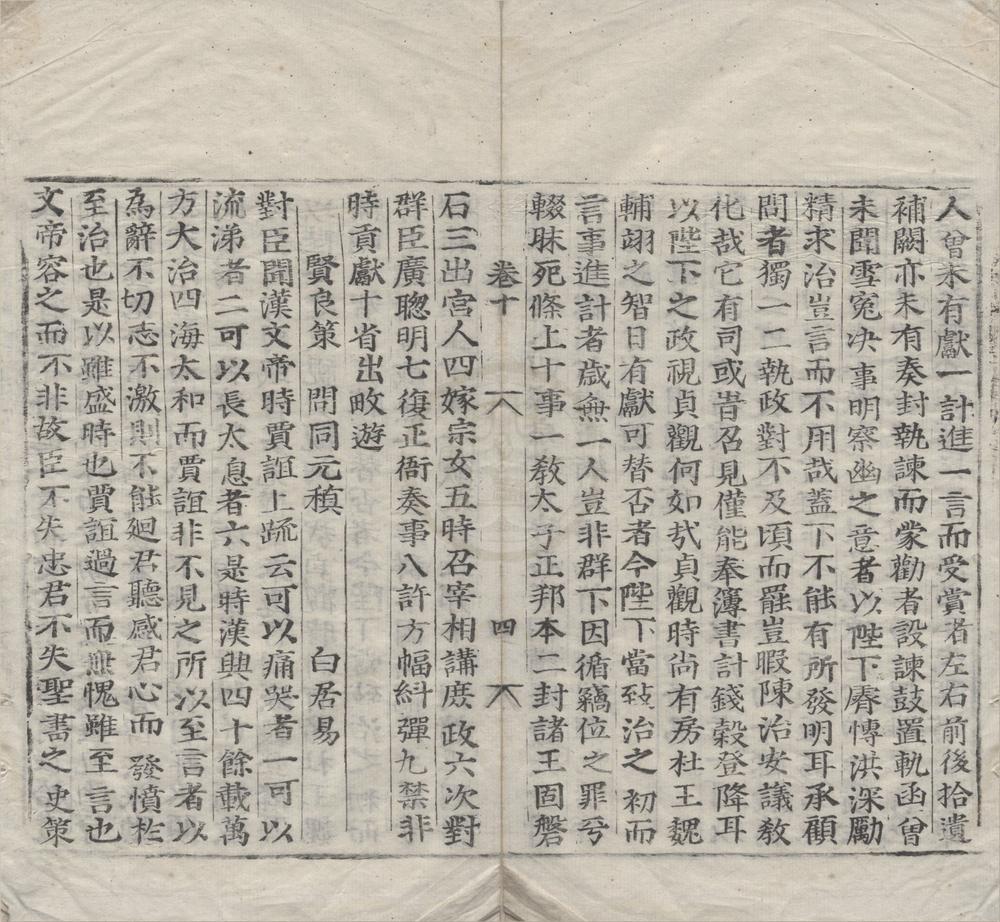 人曾未有獻一計進一言而受賞者左右前後拾遺
補闕亦未有奏封執諫而蒙勸者設諫鼓置軌函曾
未聞雪冤决事明察幽之意者以陛下睿慱洪深勵
精求治豈言而不用哉蓋下不能有所發明耳承顧
問者獨一二執政對不及頃而罷豈暇陳治安議教
化哉它有司或旹召見僅能奉簿書計錢穀登降耳
以陛下之政視貞觀何如㦲貞觀時尚有房杜王魏
輔翊之智日有獻可替否者今陛下當致治之初而
言事進計者歲無一人豈非群下因循竊位之罪兮
輟昧死條上十事一教太子正邦本二封諸王固磐
卷十
四
石三出宮人四嫁宗女五時召宰相講庶政六次對
群臣廣聦明七復正衙奏事八許方幅糾彈九禁非
時貢獻十省出畋遊
賢良策 問同元稹 白居易
對臣聞漢文帝時賈誼上疏云可以痛哭者一可以
流涕者二可以長太息者六是時漢興四十餘載萬
方大治四海太和而賈誼非不見之所以至言者以
為辭不切志不激則不能廻君聽感君心而發憤於
至治也是以雖盛時也賈誼過言而無愧雖至言也
文帝容之而不非故臣不失忠君不失聖書之史策